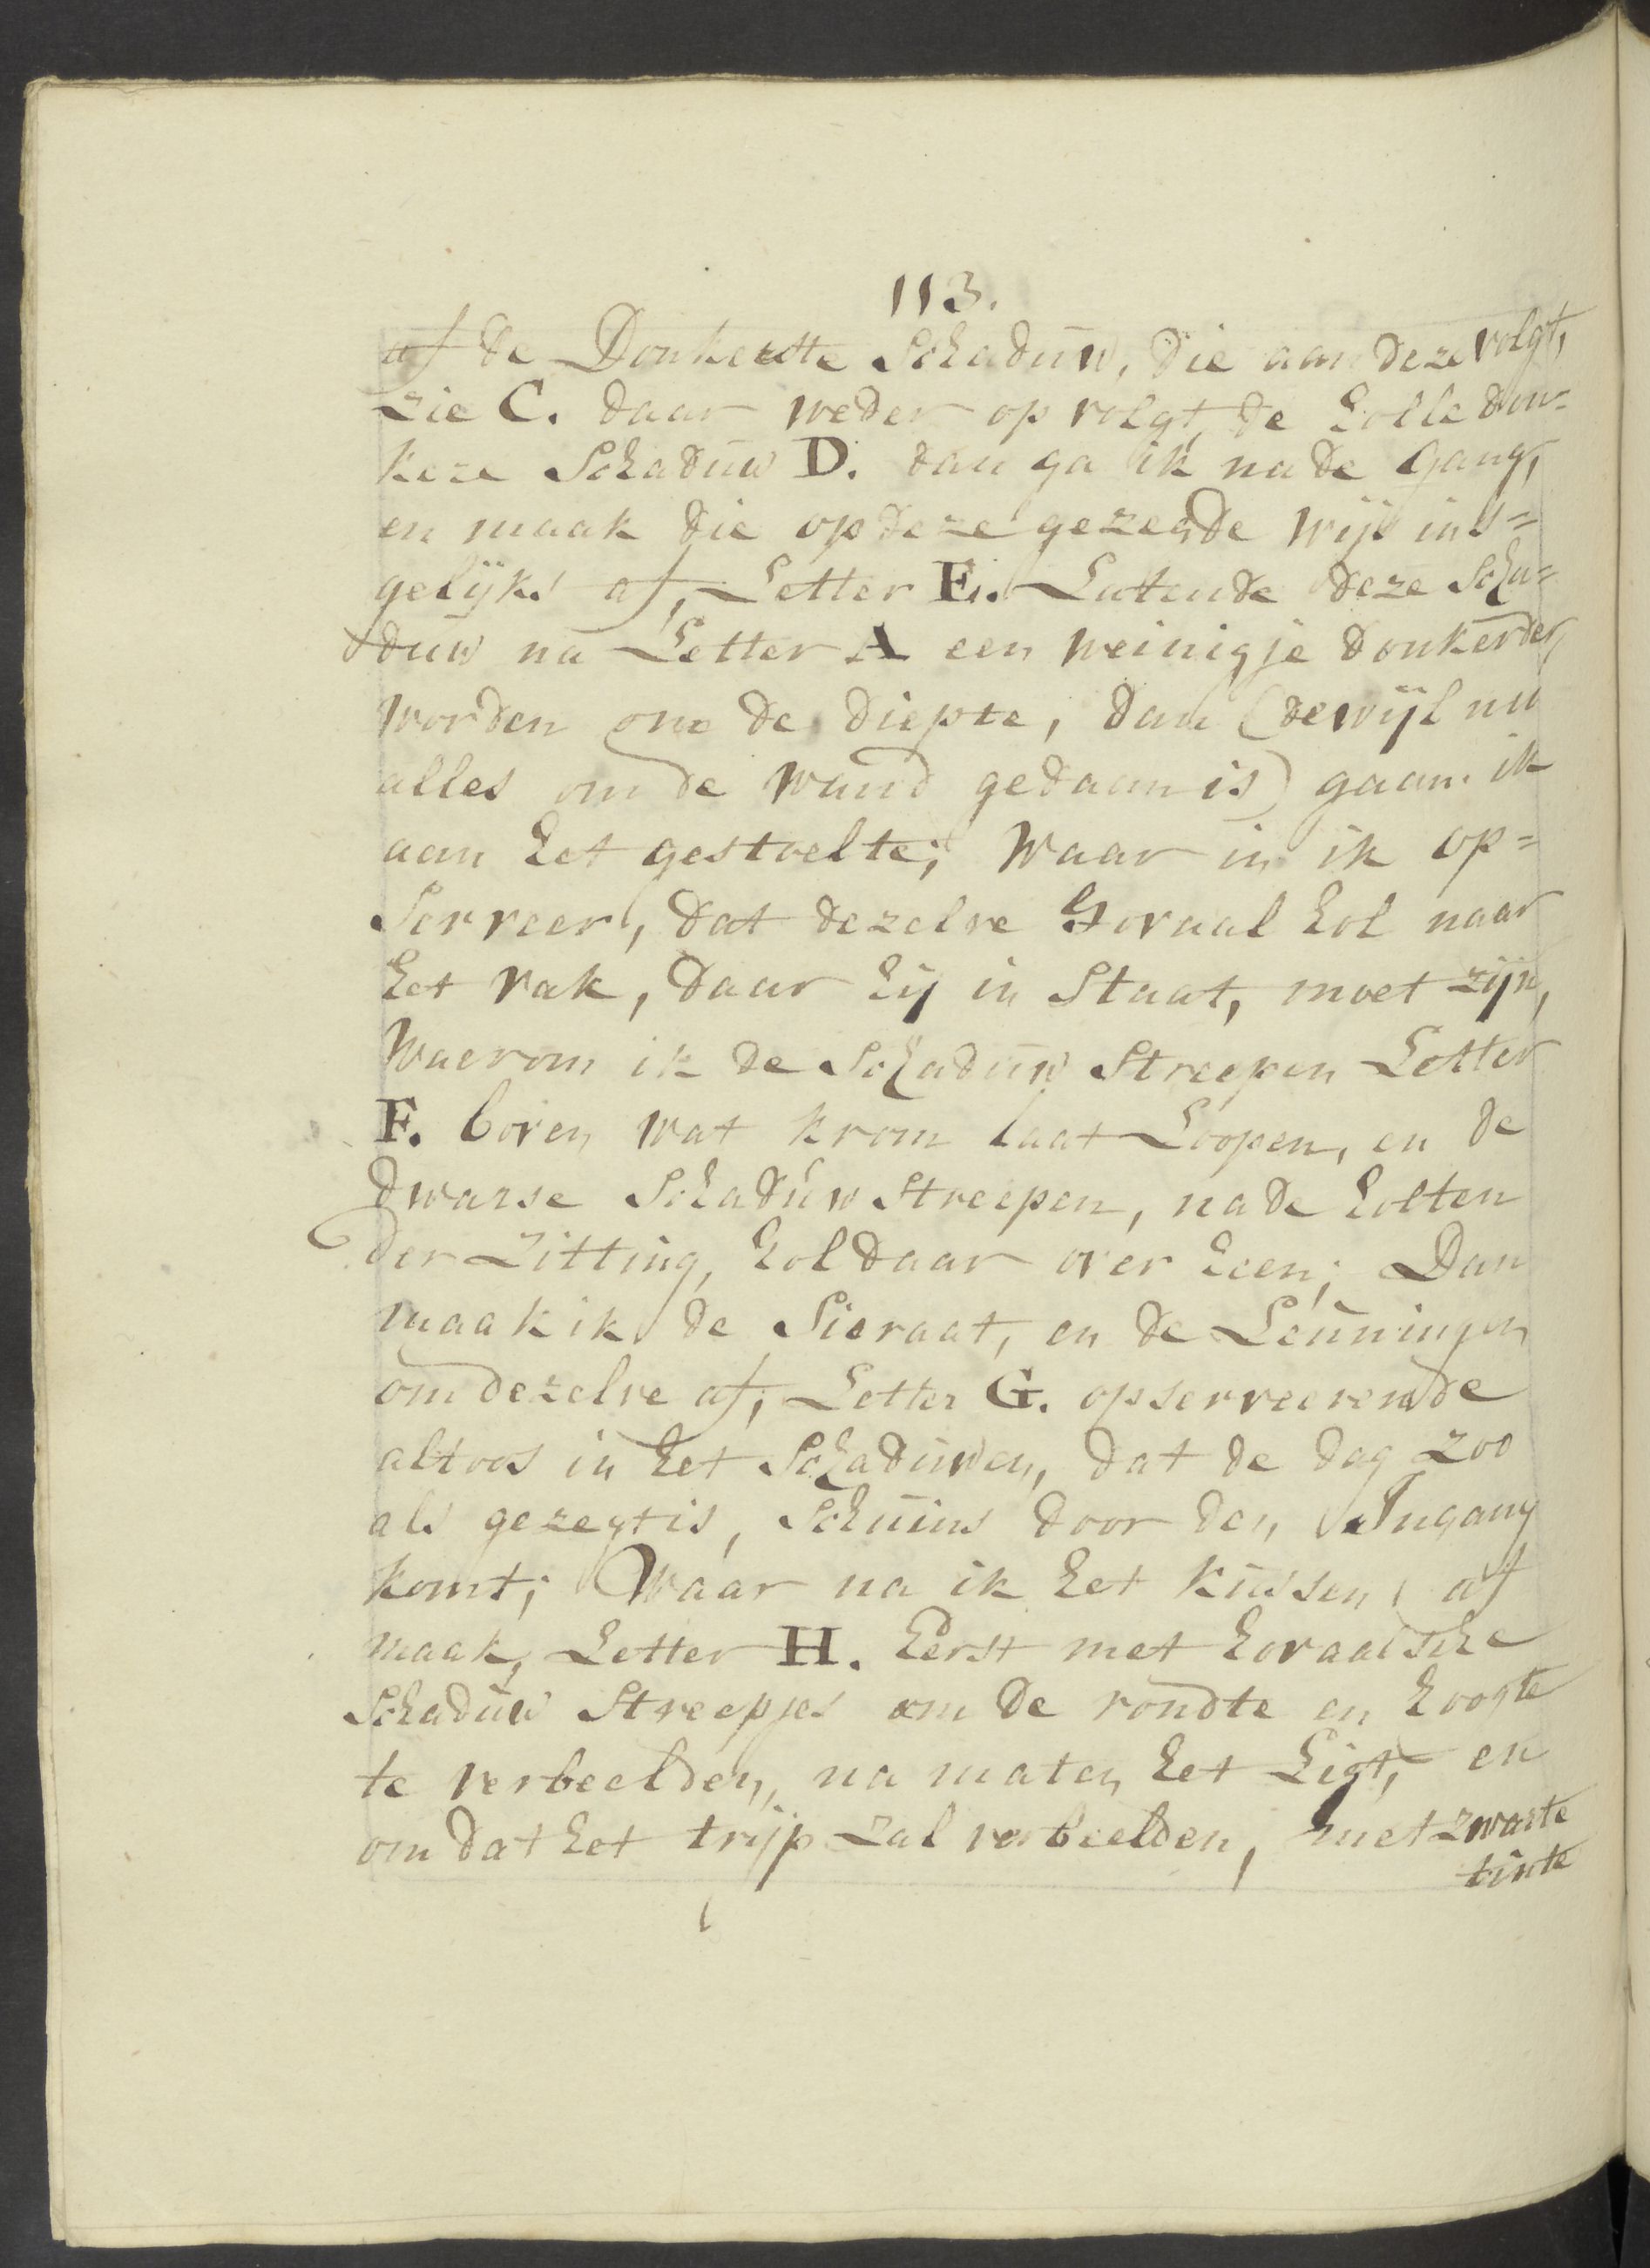 113.
af de Donkerste Schaduw, die aan deze volgt,
zie C. daar weder op volgt de holle don-
kere Schaduw D. dan ga ik na de Gang,
en maak die op deze gezegde wijs ins=
gelijks af, Letter E. Latende deze Scha=
duw na Letter A een weinigje donkerder
worden om de diepte, dan (dewijl nu
alles om de wand gedaan is) gaan ik
aan het gestoelte; Waar in ik op=
Serveer, dat dezelve Horaal hol naar
het vak, daar hij in Staat, moet zijn,
Waerom ik de Schaduw Streepen Letter
F. boven wat krom laat Loopen, en de
dwarse Schaduw Streepen, na de holten
der Zitting, hol daar over heen; Dan
maak ik de Sieraat, en de Leuningen
om dezelve af, Letter G. opserveerende
altoos in het Schaduwen, dat de dag zoo
als gezegt is, Schuins door den Ingang
komt; Waar na ik het kussen af
maak, Letter H. Eerst met horaalsche
Schaduw Streepjes om de rondte en hoogte
te verbeelden, na maten het Ligt, en
om dat het trijp zal verbeelden, met zwarte
tinte